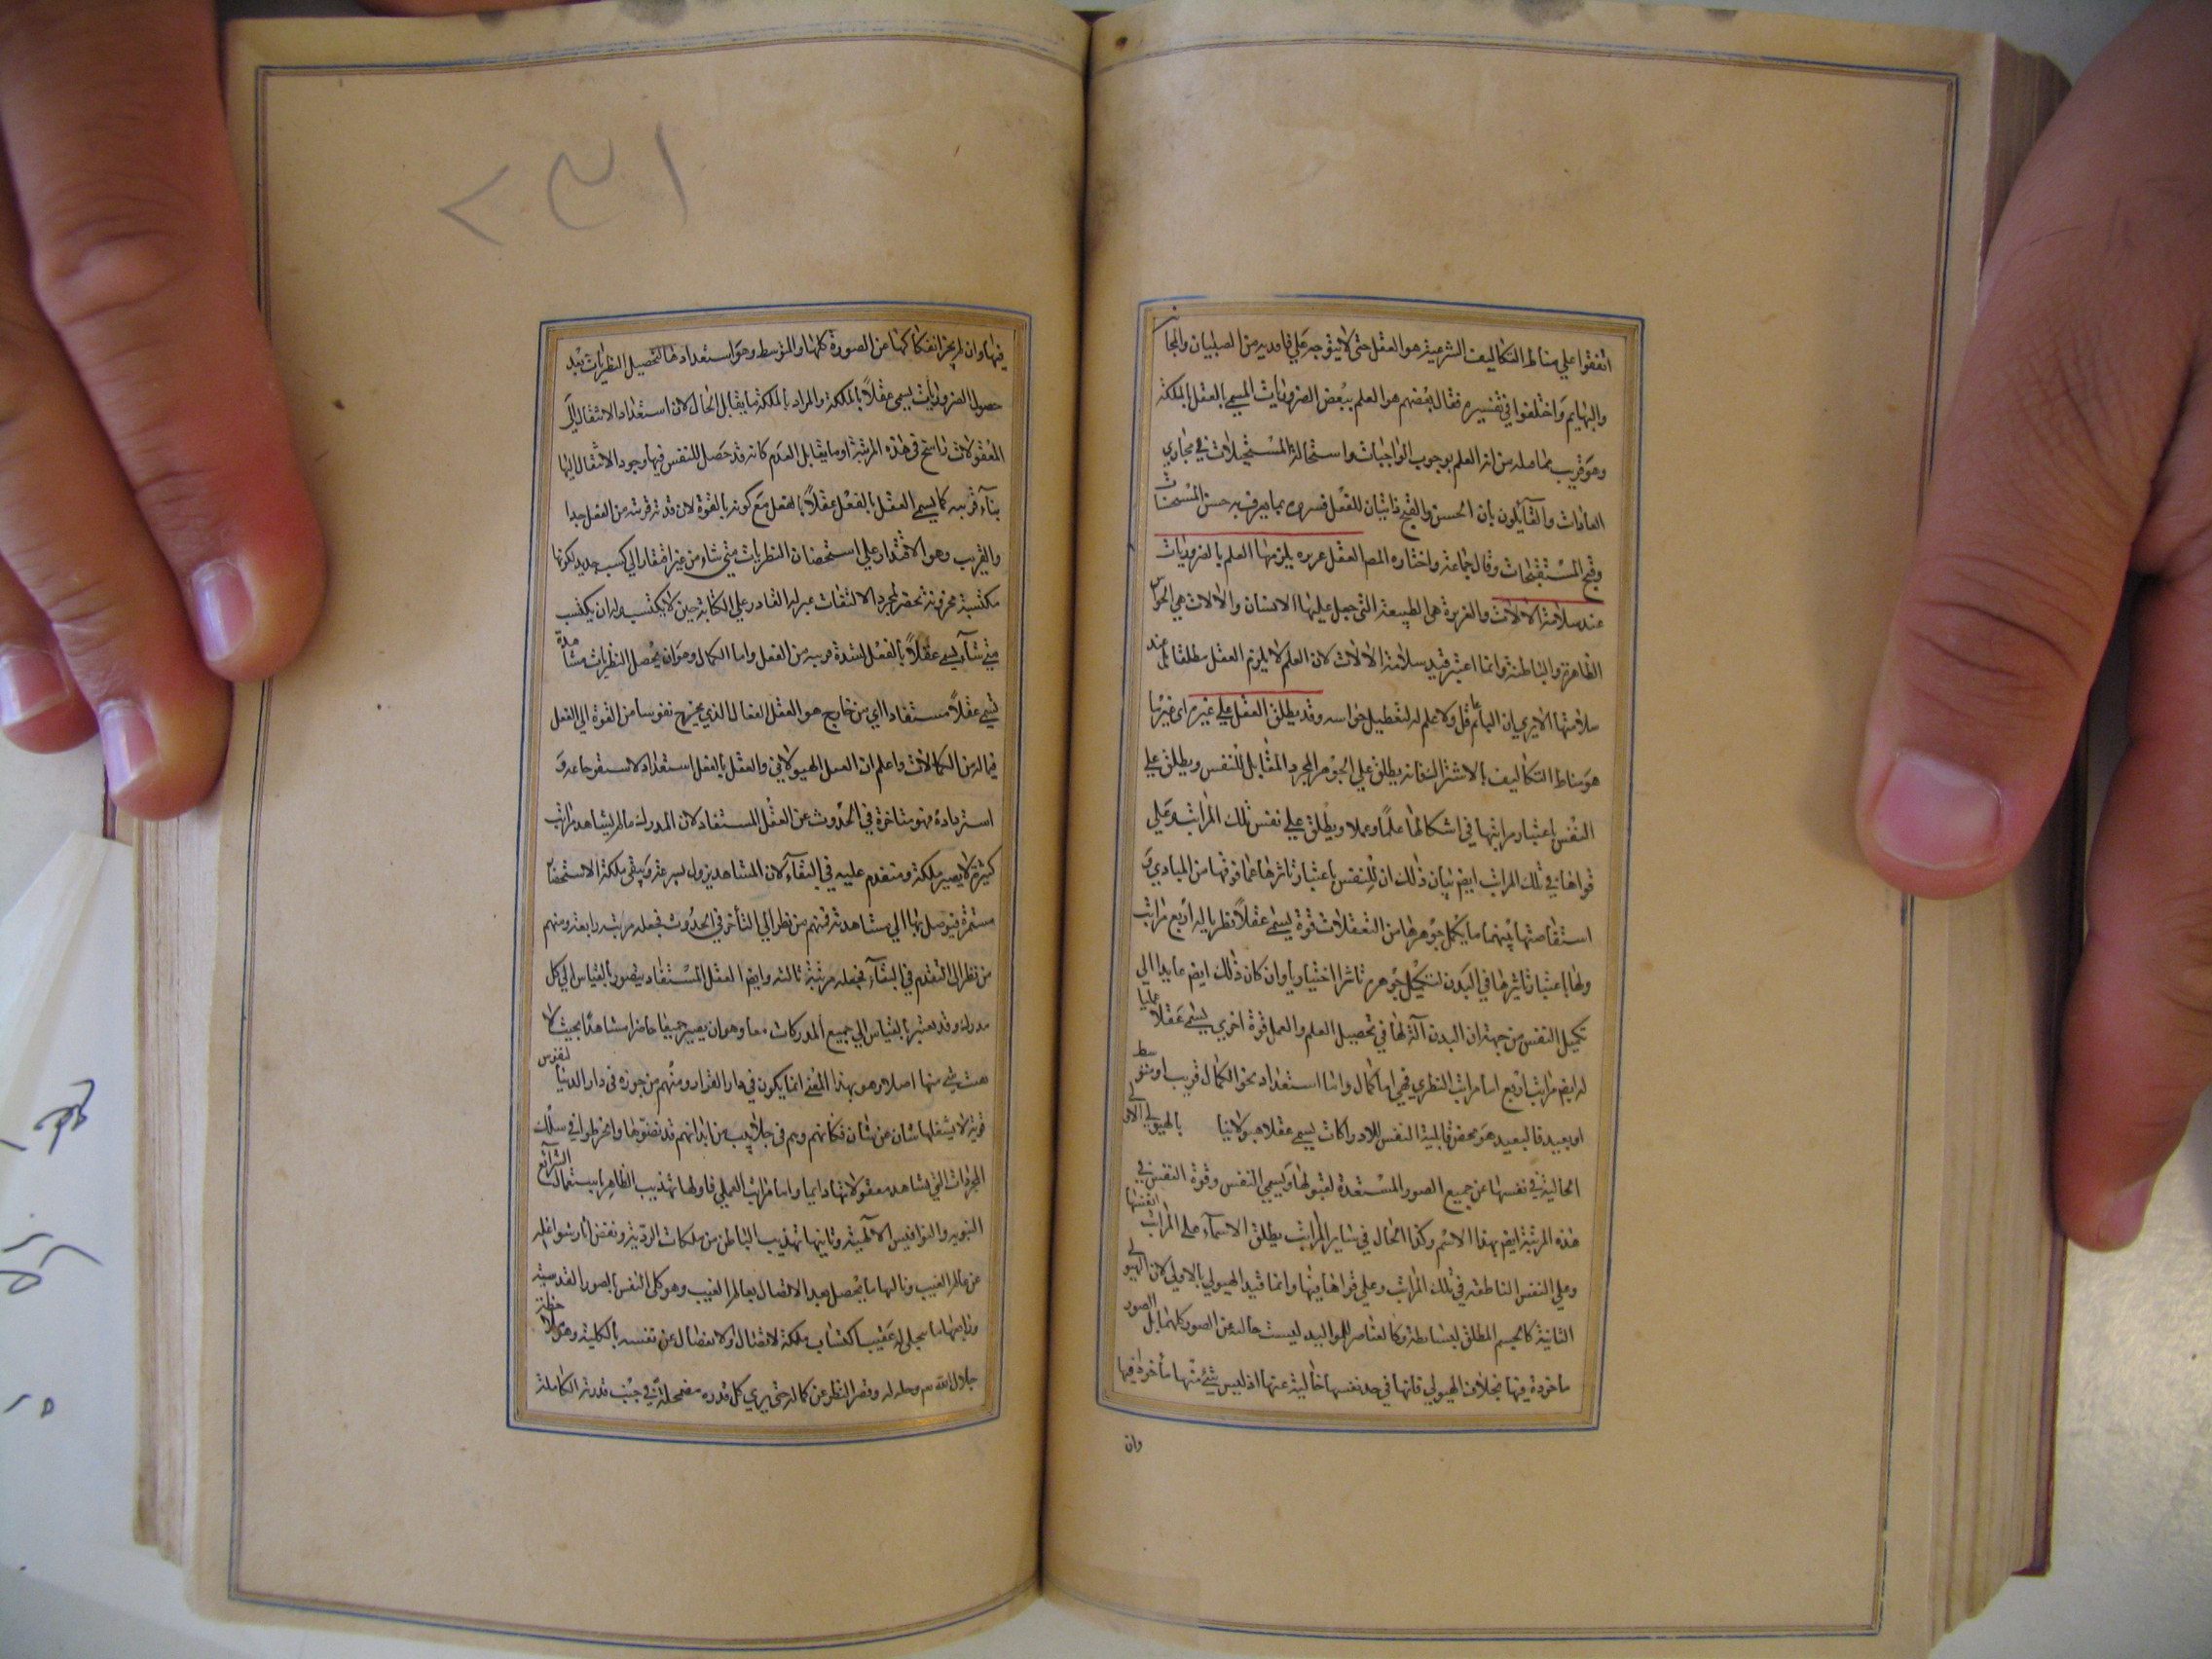 اتفقوا علي مناط التكاليف الشرعية هو العقل حتى لا يتوجه علي فاقديه من الصبيان والمجانين
والبهايم واختلفوا في تفسيره فقال بعضهم هو العلم ببعض الضروريات المسمي بالعقل بالملكة
وهو قريب بما قيل من انه العلم بوجوب الواجبات واستحالة المستحيلات في مجاري
العادات والقآيلون بان الحسن والقبح ذاتيان للعقل فسروه بما يعرف به حسن المستحسنات
وقبح المستقبحات وقال جماعة واختاره المص العقل غريزه يلزمها العلم بالضروريات
عند سلامة الآلات والغريزة هي الطبيعة التي جبل عليها الانسان والآلات هي الحواس
الظاهرة والباطنة وانما اعتبر قيد سلامة الالات لان العلم لا يلزم العقل مطلقا بل عند
سلامتها الا يري ان النائم عاقل ولا علم له لتعطيل حواسه وقد يطلق العقل علي غيره اى غير ما
هو مناط التكاليف بالاشتراك فانه يطلق علي الجوهر المجرد المقابل للنفس ويطلق علي
النفس باعتبار مراتبها في استكمالها علما وعملا ويطلق علي نفس تلك المراتب وعلي
قواها في تلك المراتب ايضر بيان ذلك ان للنفس باعتبار تاثرها عما فوقها من المبادي و
استفاضتها عنها ما يكمل جوهرها من التعقلات قوة يسمى عقلا نظريا له اربع مراتب
ولها باعتبار تاثيرها في البدن لتكميل جوهره تاثرا اختياريا وان كان ذلك ايضر عايدا الي
تكميل النفس من جهة ان البدن آلة لها في تحصيل العلم والعمل قوة اخري يسمى عقلا عمليا
له ايضر مراتب اربع اما مراتب النظري فهي اما كمال واما استعداد نحو الكمال قريب او متوسط
او بعيد فالبعيد هو محض قابلية النفس للادراكات يسمي عقلا هيولانيا بالهيولي الاولي
الخالية في نفسها عن جميع الصور المستعدة لقبولها ويسمي النفس وقوة النفس في
هذه المرتبة ايضر بهذا الاسم وكذا الحال في ساير المراتب يطلق الاسماء علي المراتب انفسها
وعلي النفس الناطقه في تلك المراتب وعلي قواها فيها وانما قيد الهيولي بالاولي لان الهيولي
الثانية كالجسم المطلق لبساطته وكالعناصر للمواليد ليست خاليه عن الصور كلها بل الصور
ماخوذة فيها بخلاف الهيولي فانها في حد نفسها خالية عنها اذ ليس شئ منها ماخوذة فيها
وان
٢٥١
فيها وان لم يجز انفكاكها عن الصورة كلها والمتوسط وهو استعدادها لتحصيل النظريات بعد
حصول الضروريات يسمى عقلا بالملكة والمراد بالملكة ما يقابل الحال لان استعداد الانتقال الى
المعقولات راسخ في هذه المرتبة او ما يقابل العدم كانه قد حصل للنفس فيها وجود الانتقال اليها
بناء قربه كما يسمي العقل بالفعل عقلا بالفعل مع كونه بالقوة لان قوته قريبة من الفعل جدا
والقريب وهو الاقتدار علي استحضار النظريات متى شاء من غير افتقار الي كسب جديد لكونها
مكتسبة مخزونة تحضر بمجرد الالتفات بمنزلة القادر علي الكتابة حين لا يكتسب وله ان يكتسب
متي شاء يسمي عقلا بالفعل لشدة قربه من الفعل واما الكمال وهو ان يحصل النظريات مشاهدة
يسمي عقلا مستفادا اي من خارج هو العقل الفعال الذي يخرج نفوسنا من القوة الي الفعل
فيما له من الكمالات واعلم ان العقل الهيولاني والعقل بالفعل استعداد لاسترجاعه و
استرداده فهو متاخرة في الحدوث عن العقل المستفاد لان المدرك ما لم يشاهد مراتب
كثيرة لا يصير ملكة ومتقدم عليه في البقآء لان المشاهدة يزول بسرعة ويبقى ملكة الاستحضار
مستمرة فيتوصل بها الي مشاهدته فمنهم من نظر الي التأخر في الحدوث فجعله مرتبه رابعة ومنهم
من نظر الى التقدم في البقآء فجعله مرتبة ثالثه وايضر العقل المستفاد يتصور بالقياس الي كل
مدرك وقد يعتبر بالقياس الي جميع المدركات معا وهو ان يصير جميعا حاضرا مشاهدا بحيث لا
شئ منها اصلا وهو بهذا المعني انما يكون في دار القرار ومنهم من جوزه في دار الدنيا لنفوس
قوية لا يشغلها شان عن شان فكانهم وهم في جلابيب من ابدانهم قد نضوها وانخرطوا في سلك
المجردات التي يشاهد معقولاتها دايما واما مراتب العملي فاولها تهذيب الظاهر باستعمال الشرائع
النبويه والنواميس الالهية وثانيها تهذيب الباطن من ملكات الرديّة ونقض آثار شواغله
عن عالم الغيب وثالثها ما يحصل بعد الاتصال بعالم الغيب وهو تحلى النفس بالصور القدسية
ورابعها ما يتجلى له عقيب اكتساب ملكة لاتصال والانفصال عن نفسه بالكلية وهو ملاحظة
جلال الله وجماله وقصر النظر عن كماله حتى يري كل قدره مضمحلة في جنب قدرته الكاملة